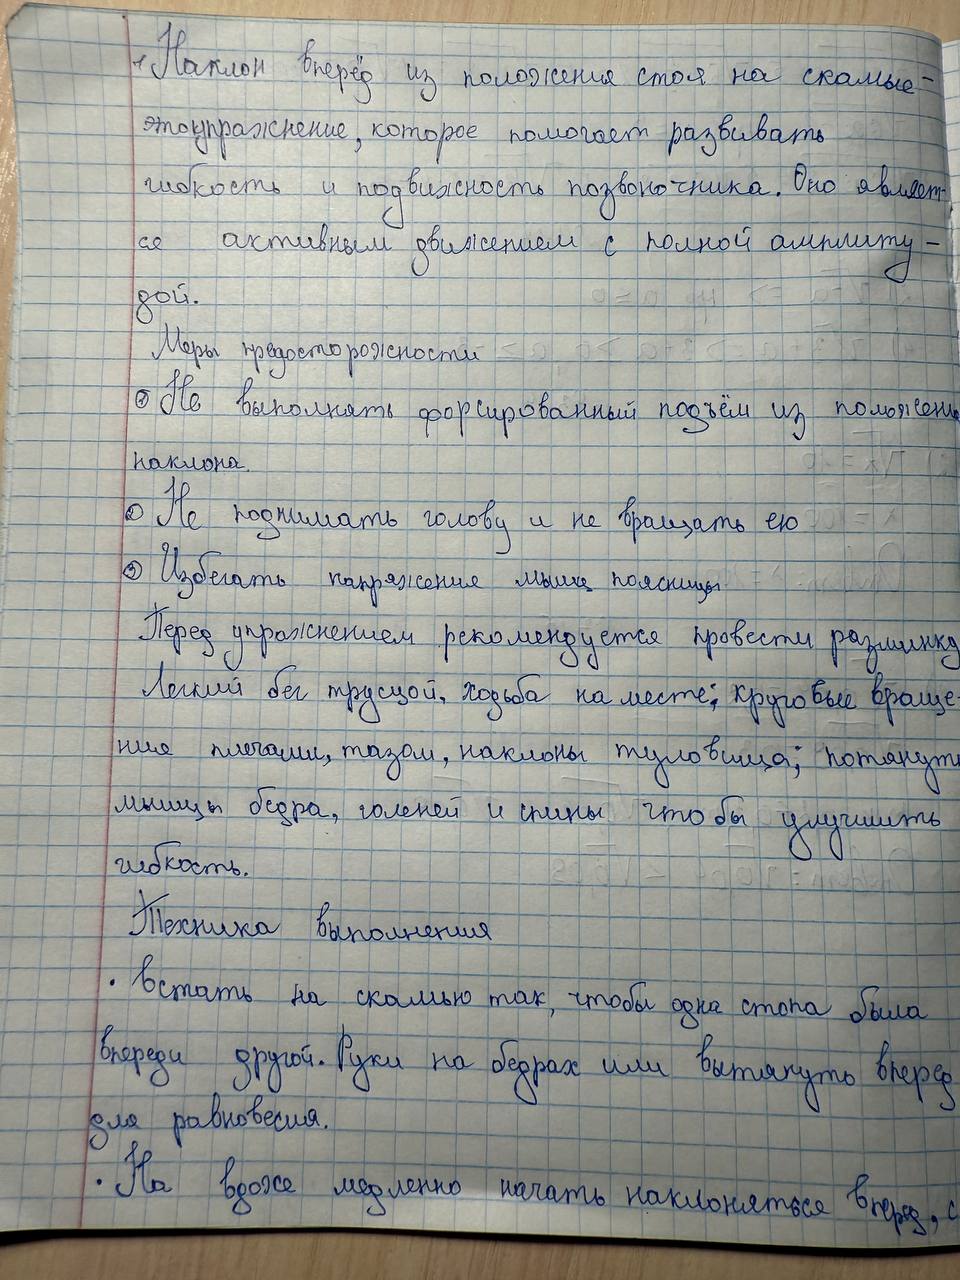 Наклон вперёд из положения стоя на скамье-
этоупражнение, которое помогает развивать
гибкость и подвижность позвоночника. Оно являет-
ся активным движением с полной амплиту-
дой.
Меры предосторожности
Не выполнять форсированный подъём из положени
наклона.
Не поднимать голову и не вращать ею
Избегать напряжения мышц поясницы
Перед упражнением рекомендуется провести разминку
Легкий бег трусцой, ходьба на месте; круговые враще-
ния плечами, тазом, наклоны туловища; потянуть
мышцы бедра, голеней и спины чтобы улучшить
гибкость.
Техника выполнения
• Встать на скамью так, чтобы одна стопа была
впереди другой. Руки на бедрах или вытянуто вперед
для равновесия.
• На вдохе медленно начать наклоняться вперед, с